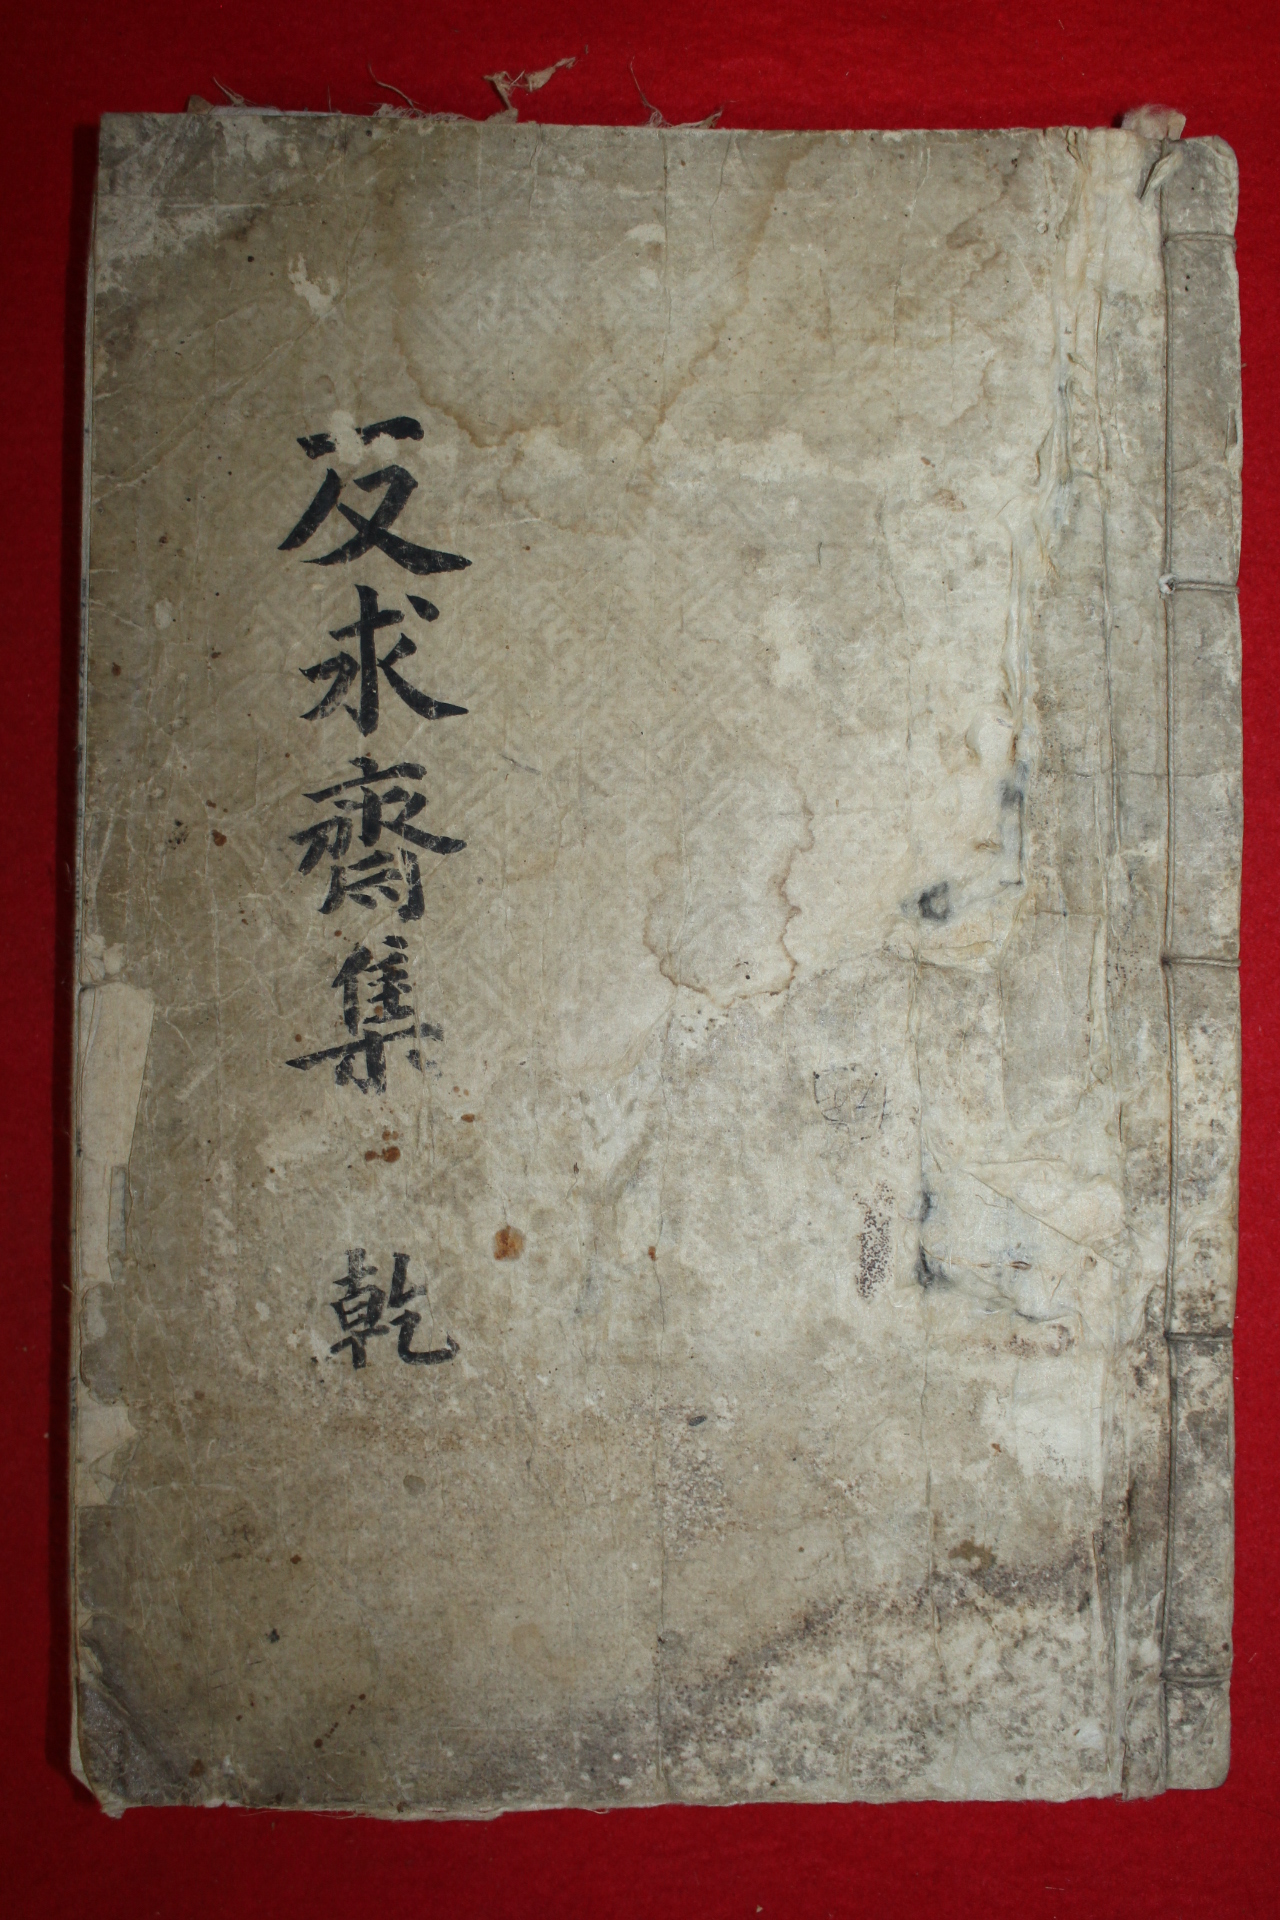 反求齋集 乾